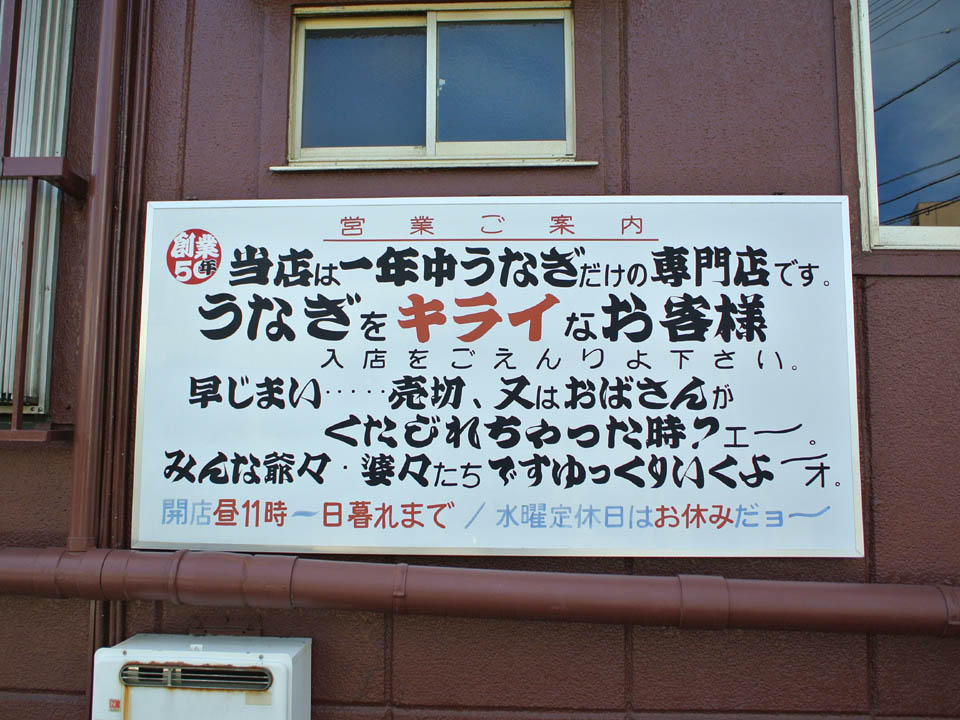 営業ご案内
創業
50年
当店は一年中うなぎだけの専門店です。
うなぎをキライなお客様
入店をごえんりよ下さい。
早じまい‥‥‥売切、又はおばさんが
くたびれちゃった時?エ〜。
みんな爺々・婆々たちですゆっくりいくよ〜オ。
開店昼11時〜日暮れまで/水曜定休日はお休みだョ〜